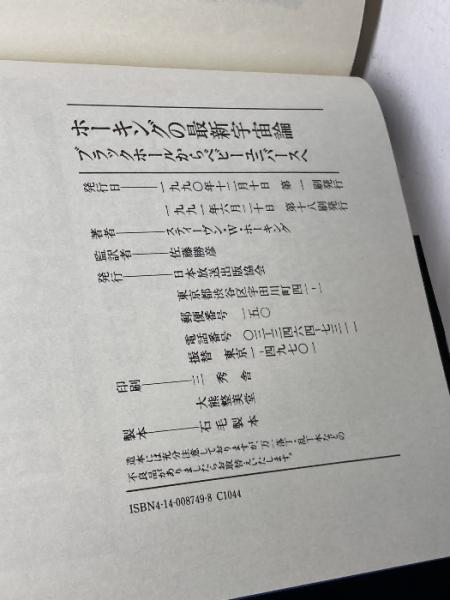 ホーキングの最新宇宙論
ブラックホールからベビーユニバースへ
発行日――一九九〇年十二月十日 第一刷発行
一九九一年六月二十日 第十八刷発行
著者――スティーヴン・W・ホーキング
監訳者――佐藤勝彦
発行――日本放送出版協会
東京都渋谷区宇田川町四一-一
郵便番号 一五〇
電話番号 〇三-三四六四-七三一一
振替 東京一-四九七〇一
印刷――三秀舎
大熊整美堂
製本――石毛製本
造本には充分注意しておりますが、万一落丁・乱丁本などの
不良品がありましたらお取替えいたします。
ISBN4-14-008749-8 C1044